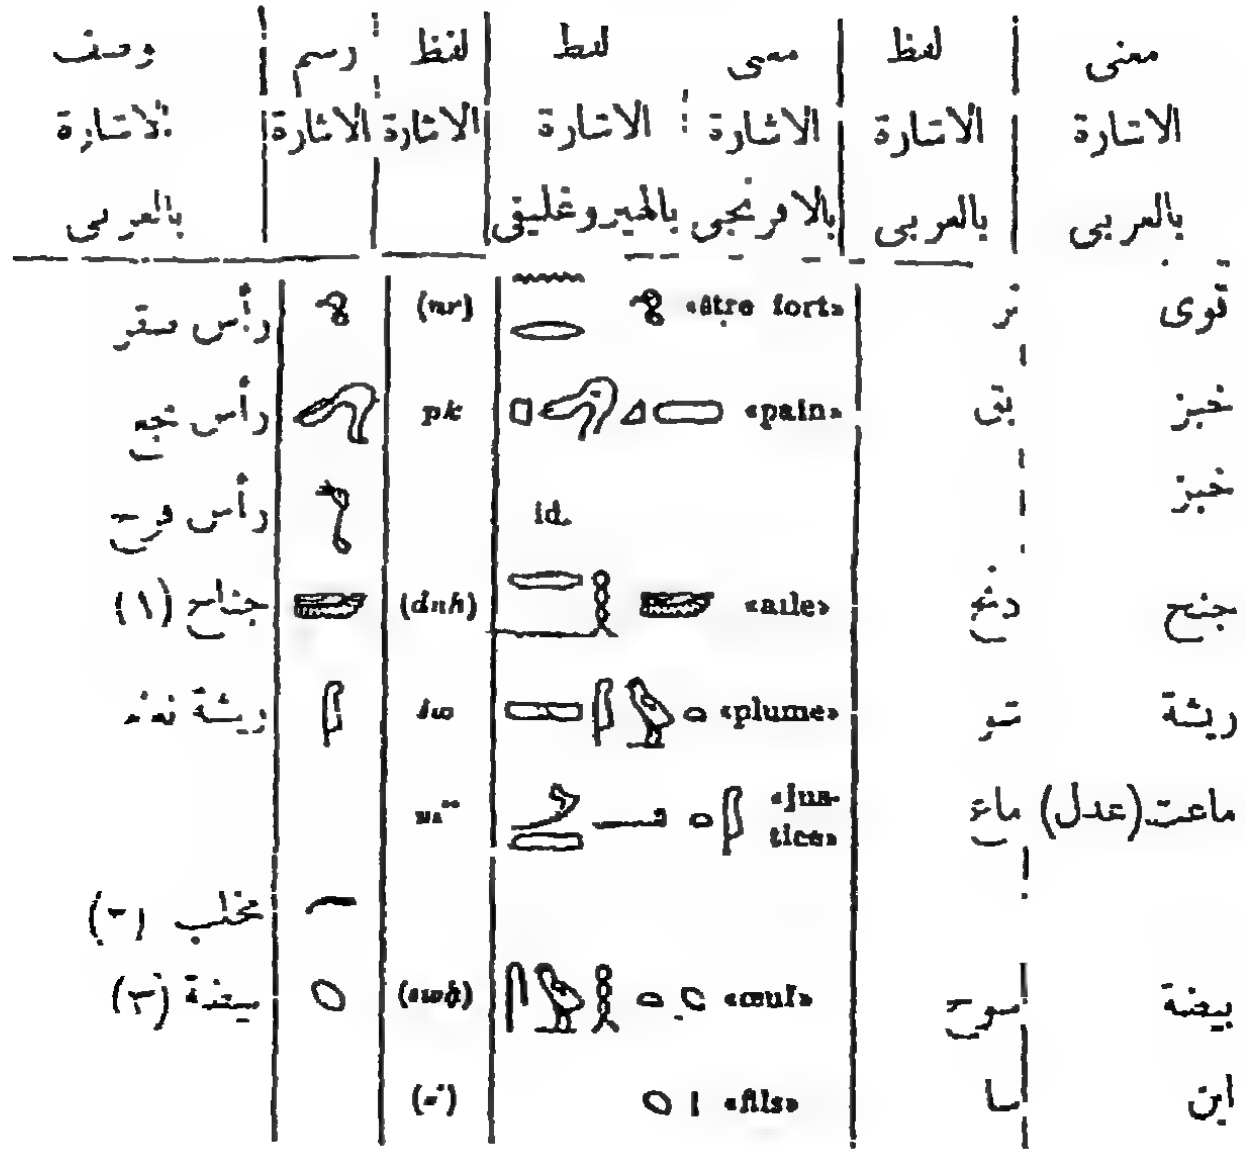 معنى الاشارة بالعربى | لفظ الاشارة بالعربى | معنى الاشارة بالافرنجى | لفظ الاشارة بالهيروغليفى | لفظ الاشارة | رسم الاشارة | وصف الاشارة بالعربى
قوى نر «être fort» (nr) رأس صقر
خبز بق «pain» pk رأس بجع
خبز id. رأس فرخ
جنح دنح «aile» (dnḥ) جناح (١)
ريشة شو «plume» šw ريشة نعام
ماعت (عدل) ماع «justice»
مخلب (٢)
بيضة سوح «œuf» (swḥ) بيضة (٣)
ابن سا «fils»